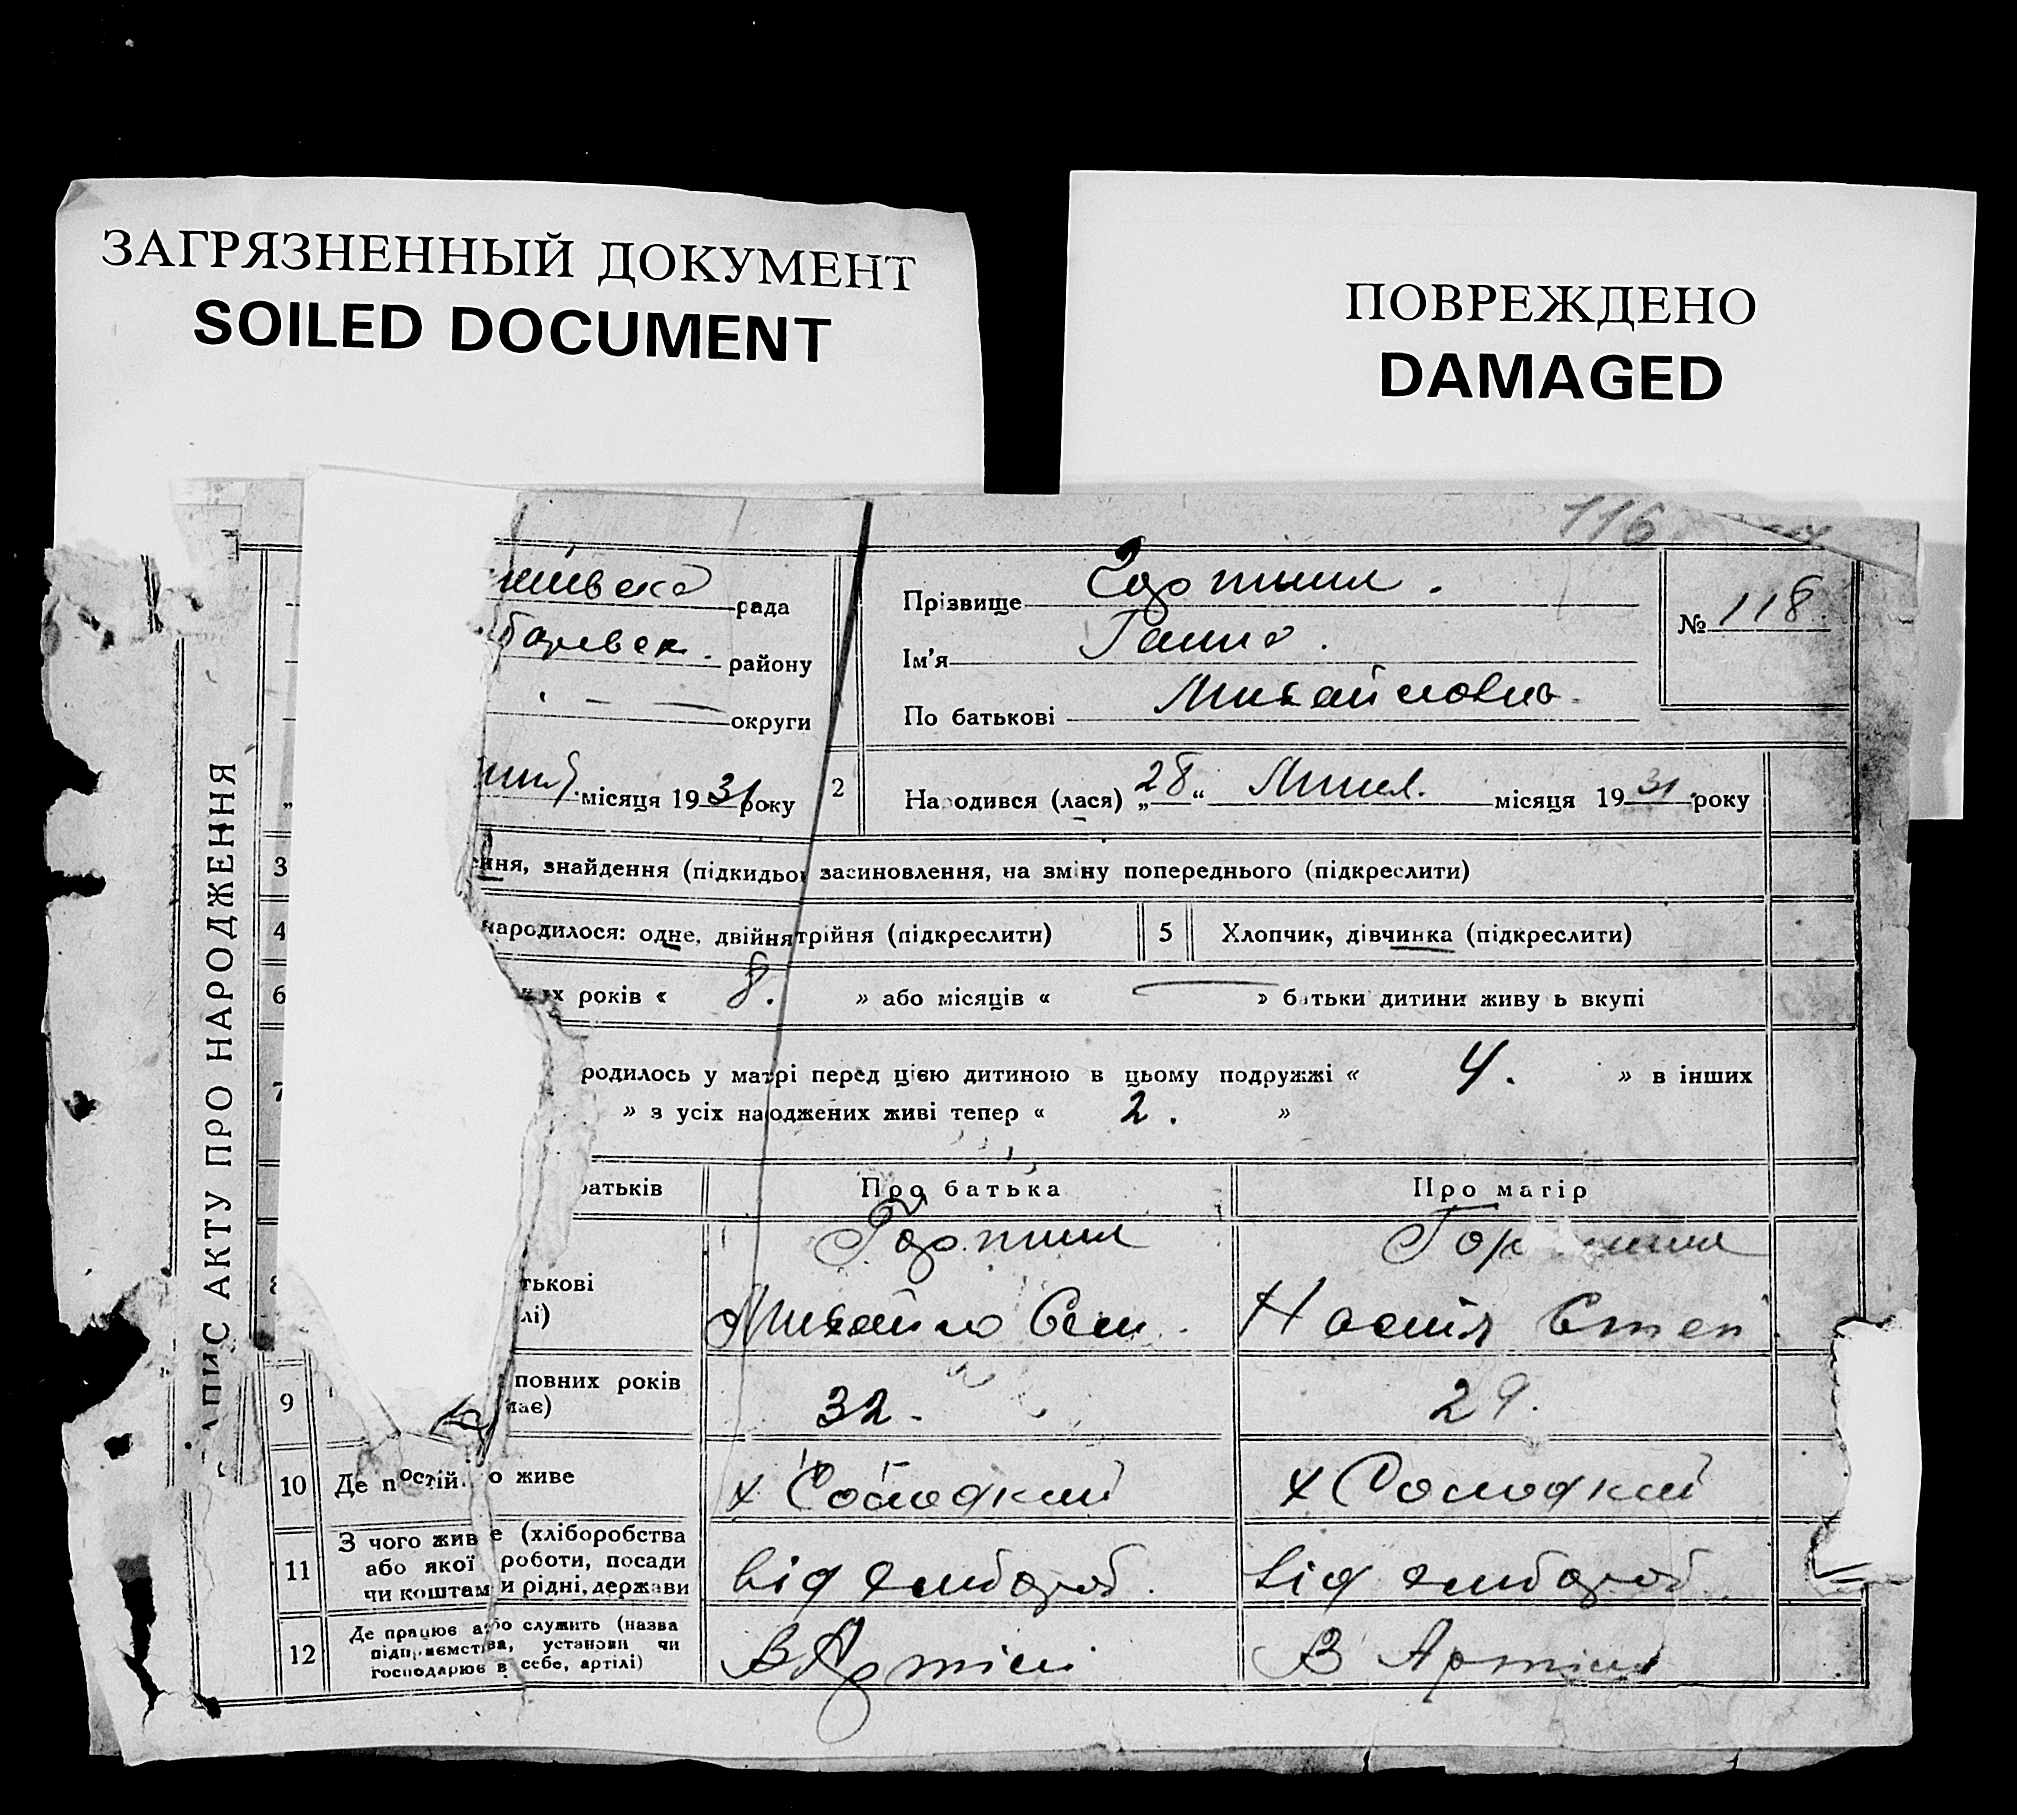 ЗАГРЯЗНЕННЫЙ ДОКУМЕНТ
SOILED DOCUMENT
ПОВРЕЖДЕНО
DAMAGED
116
рада
району
округи
Прізвище
Ім'я Ганна
По батькові Михайловна
№ 118
місяця 1931 року
2 Народився (лася) „28“ Липня місяця 1931 року
АПИС АКТУ ПРО НАРОДЖЕННЯ
3 ння, знайдення (підкидьо засиновлення, на зміну попереднього (підкреслити)
4 народилося: одне, двійня трійня (підкреслити) 5 Хлопчик, дівчинка (підкреслити)
6 років « 8. » або місяців « — » батьки дитини живуть вкупі
7 родилось у матрі перед цією дитиною в цьому подружжі « 4. » в інших
» з усіх народжених живі тепер « 2. »
батьків Про батька Про матір
8 тькові Михайло Сем. Настя Степ.
лі)
9 повних років 32. 29.
має)
10 Де постійно живе х Солодкий х Солодкий
11 З чого живе (хліборобства
або якої роботи, посади
чи коштами рідні, держави від хлібороб. від хлібороб.
12 Де працює або служить (назва
підприємства, установи чи
господарює в себе, артілі) В Артілі В Артілі